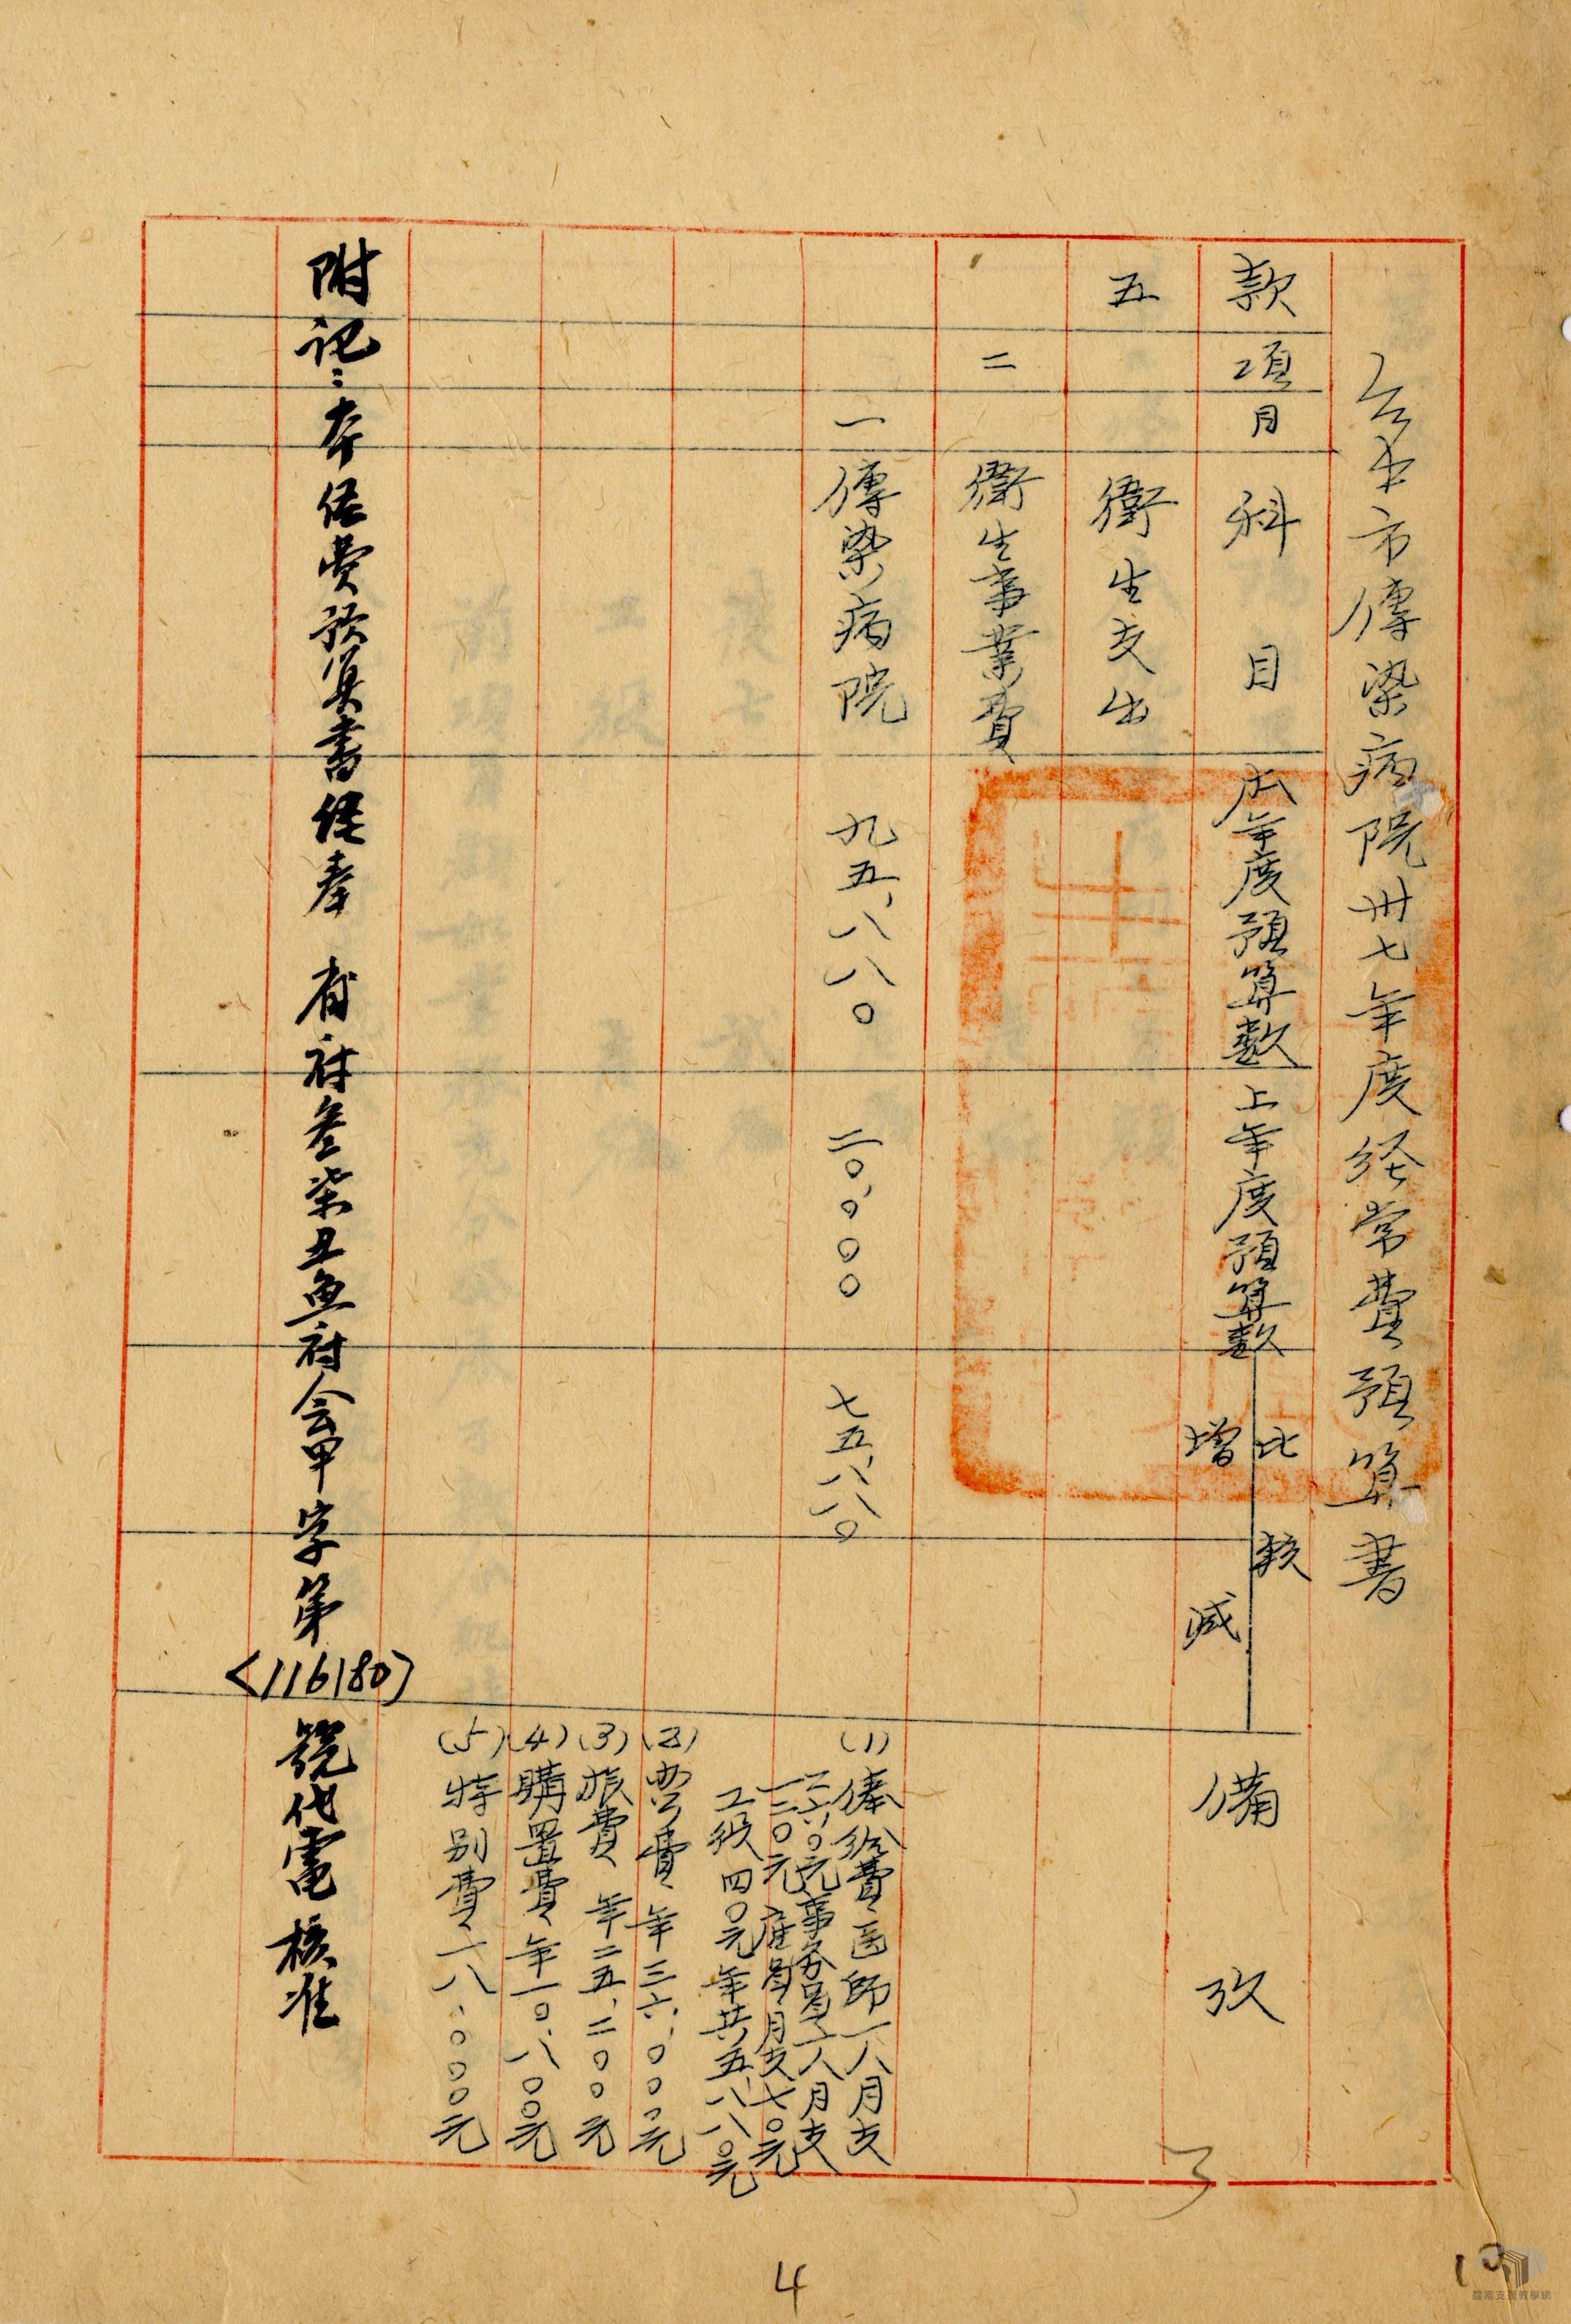 台中市傳染病院卅七年度経常費預算書
款 項 目 科目 本年度預算數 上年度預算數 比較 增 減 備攷
五 衛生支出
二 衛生事業費
一 傳染病院 九五、八八〇 二〇、〇〇〇 七五、八八〇
(1)俸給費医師一人月支
二六〇元事務員一人月支
一二〇元雇員月支七〇元
工役四〇元年共五、八八〇元
(2)办公費年三六、〇〇〇元
(3)旅費年二五、二〇〇元
(4)購置費年一〇、八〇〇元
(5)特別費一八、〇〇〇元
附記：本経費預算書経奉 省府叁柒丑魚府会甲字第<116180>號代電核准
4
檔案支援教學網